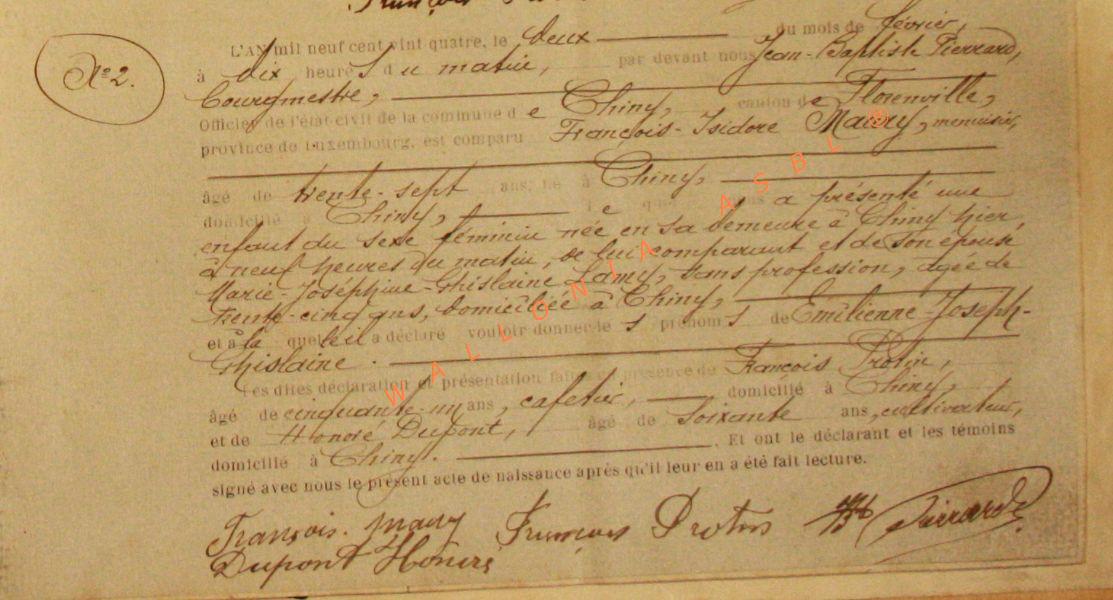 L'AN mil neuf cent vint quatre, le deux du mois de février,
N° 2.
à dix heures du matin, par devant nous Jean-Baptiste Pierrard,
bourgmestre,
Officier de l'état-civil de la commune de Chiny, canton de Florenville,
province de Luxembourg, est comparu François-Isidore Maury, menuisier,
âgé de trente-sept ans, né à Chiny,
domicilié à Chiny, a présenté une
enfant du sexe féminin née en sa demeure à Chiny hier,
à neuf heures du matin, de lui comparant et de son épouse
Marie-Joséphine-Ghislaine Lamy, sans profession, agée de
trente-cinq ans, domiciliée à Chiny,
et à la quelle il a déclaré vouloir donner les prénoms de Emilienne-Joseph-
Ghislaine.
Les dites déclaration et présentation faites en présence de François Protin,
âgé de cinquante-un ans, cafetier, domicilié à Chiny,
et de Honoré Dupont, âgé de soixante ans, cultivateur,
domicilié à Chiny. Et ont le déclarant et les témoins
signé avec nous le présent acte de naissance après qu'il leur en a été fait lecture.
François Maury François Protin JB Pierrard
Dupont Honoré
WALLONIA ASBL